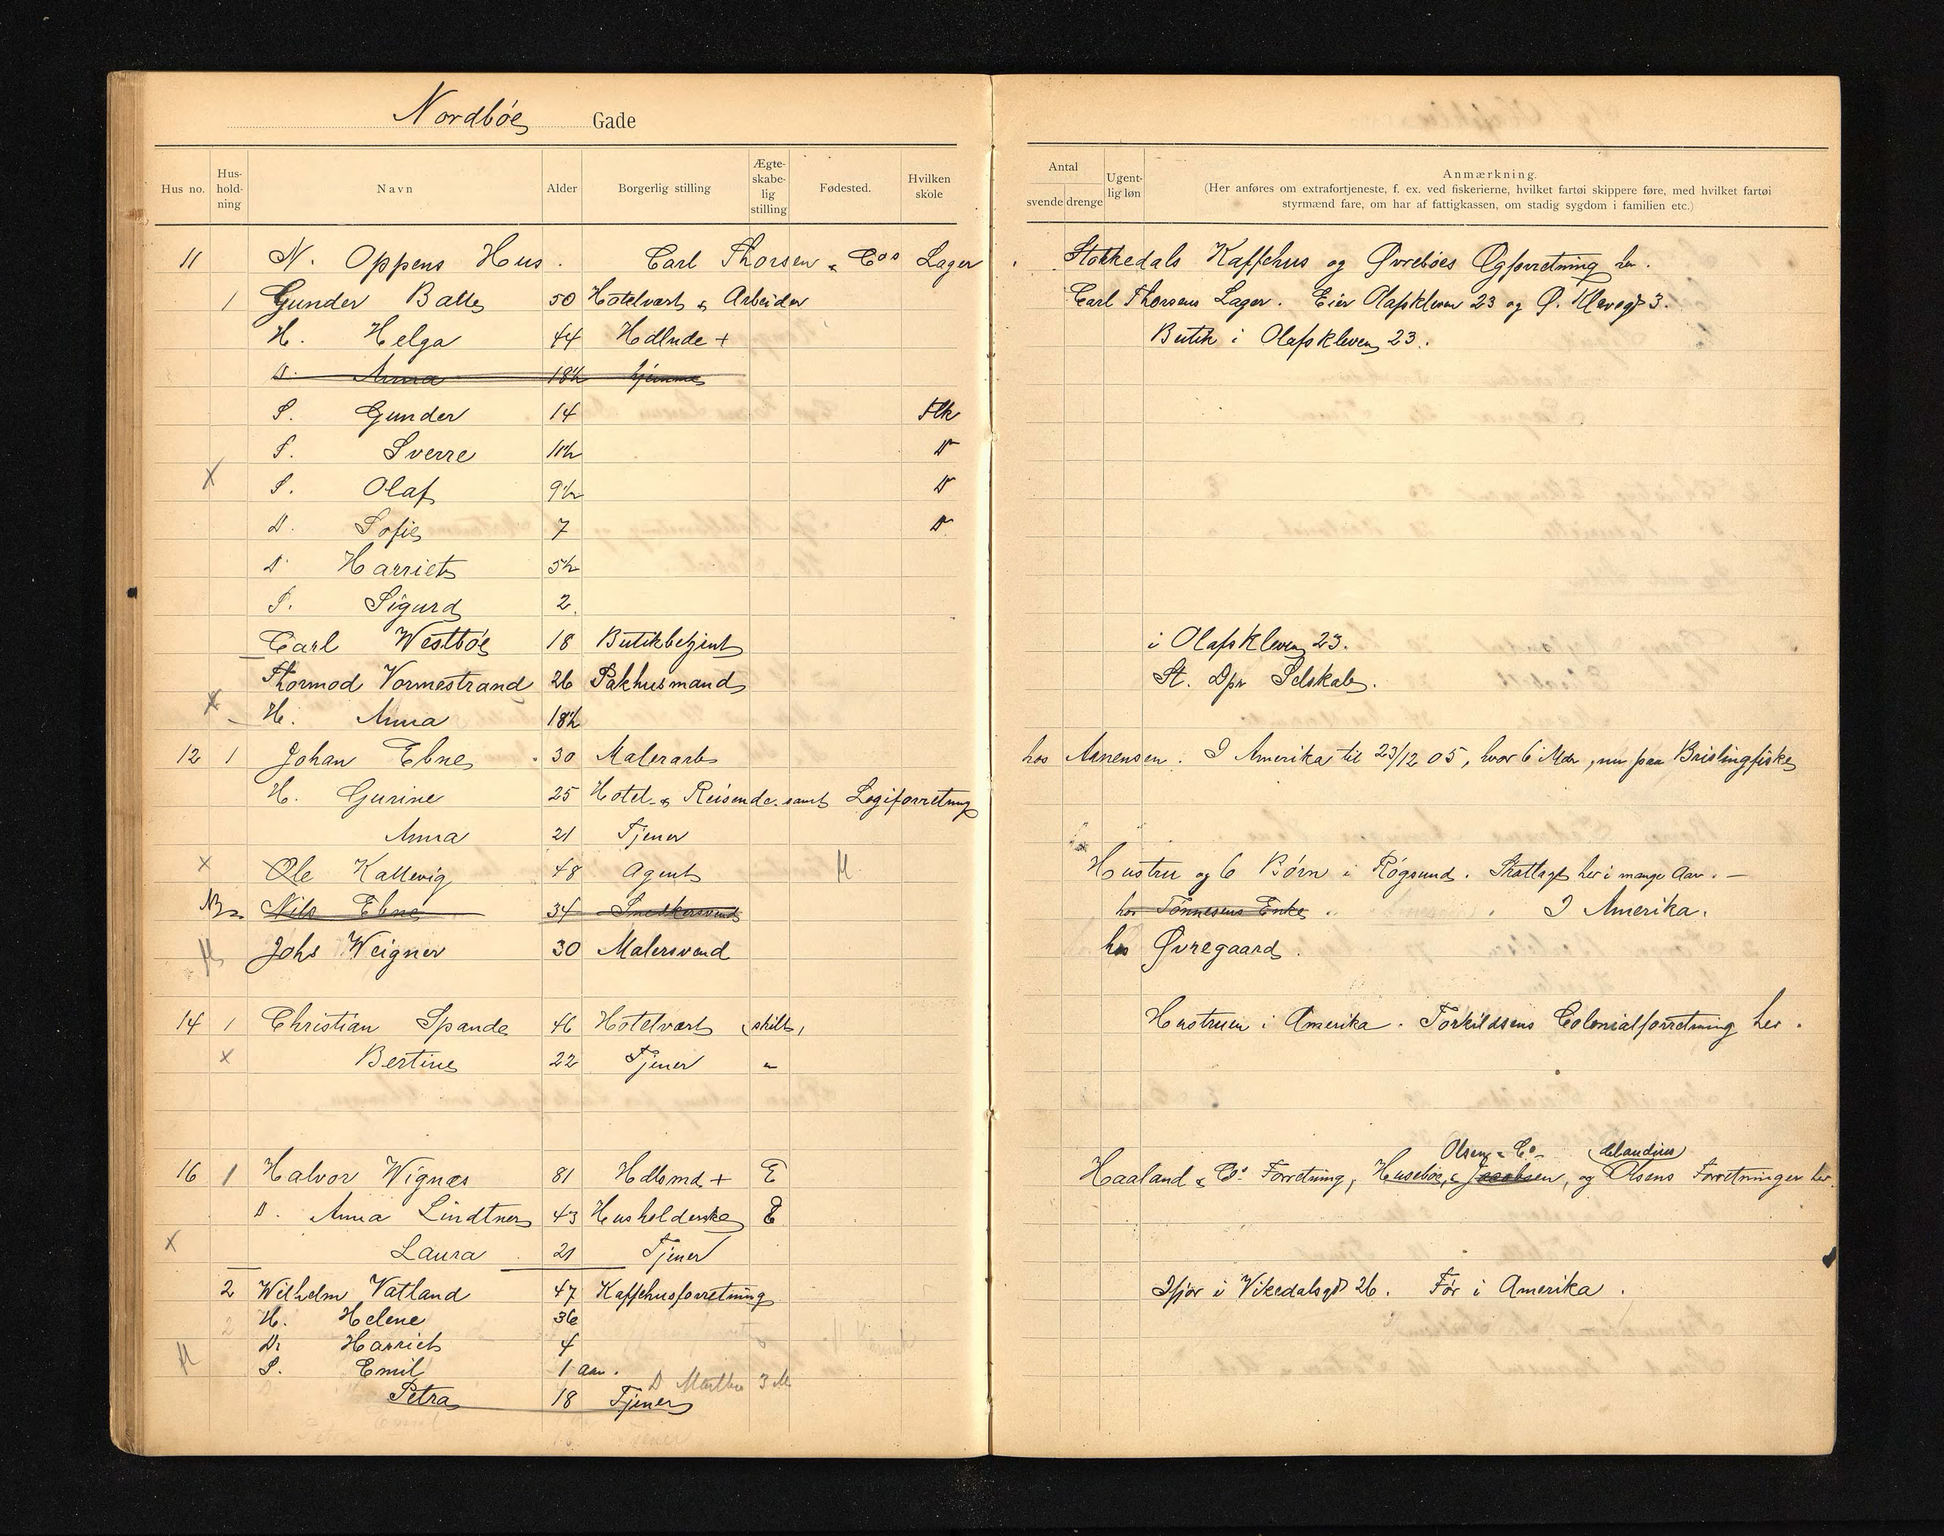 Nordbøes Gade
Hus no. Hus-hold-ning Navn Alder Borgerlig stilling Ægte-skabe-lig stilling Fødested. Hvilken skole
Antal svende drenge Ugent-lig løn Anmærkning.
(Her anføres om extrafortjeneste, f. ex. ved fiskerierne, hvilket fartøi skippere føre, med hvilket fartøi
styrmænd fare, om har af fattigkassen, om stadig sygdom i familien etc.)
11 N. Oppens Hus. Carl Thorsen & Cos Lager Stokkedals Kaffehus og Øvrebøes Ølforretning her.
1 Gunder Balle 50 Hotelvært & Arbeider Carl Thorsens Lager. Eier Olafskleven 23 og Ø. Klevegd 3.
H. Helga 44 Hdlnde + Butik i Olafskleven 23.
D. Anna 18½ hjemme
S. Gunder 14 Flk
S. Sverre 11½ D
x S. Olaf 9½ D
D. Sofie 7 D
D. Harriet 5½
S. Sigurd 2.
Carl Westbøe 18 Butikbetjent i Olafskleven 23.
Thormod Vormestrand 26 Pakhusmand St. Dps Selskab.
x H. Anna 18½
12 1 Johan Ebne 30 Malerarb hos Asnensen. I Amerika til 23/12 05, hvor 6 Mdr, nu paa Brislingfiske
H. Gurine 25 Hotel & Reisende samt Logiforretning
Anna 21 Tjener
x Ole Kallevig 48 Agent Hustru og 6 Børn i Røgsund. Skatlagt her i mange Aar. —
Nils Ebne 34 Snedkersvend hos Tønnesens Enke I Amerika.
Johs Weigner 30 Malersvend hos Øvregaard.
14 1 Christian Spande 46 Hotelvært (skilt) Hustruen i Amerika. Torkildsens Colonialforretning her.
x Bertine 22 Tjener "
Olsen & Co Claudius
16 1 Halvor Wignæs 81 Hdlsmd + E Haaland & Co. Forretning, Husebøe, & Jacobsen, og Olsens Forretninger her.
D. Anna Lindtner 43 Husholderske E
x Laura 21 Tjener
2 Wilhelm Vatland 47 Kaffehusforretning Ifjor i Vikedalsgd 26. Før i Amerika.
2 H. Helene 36
D. Harriet 4
S. Emil 1 Aar.
D Marthe 3 M
Petra 18 Tjener